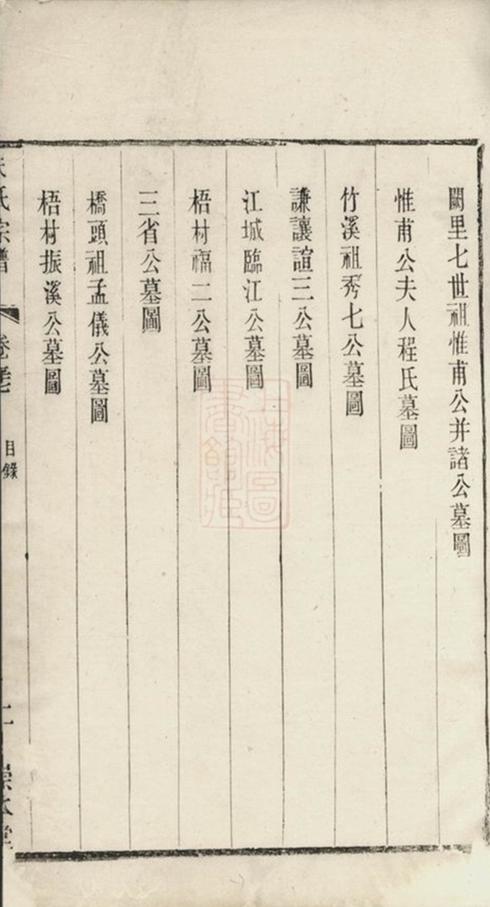 闕里七世祖惟甫公并諸公墓圖
惟甫公夫人程氏墓圖
竹溪祖秀七公墓圖
謙讓諠三公墓圖
江城臨江公墓圖
梧村福二公墓圖
三省公墓圖
橋頭祖孟儀公墓圖
梧村振溪公墓圖
氏宗譜
目錄